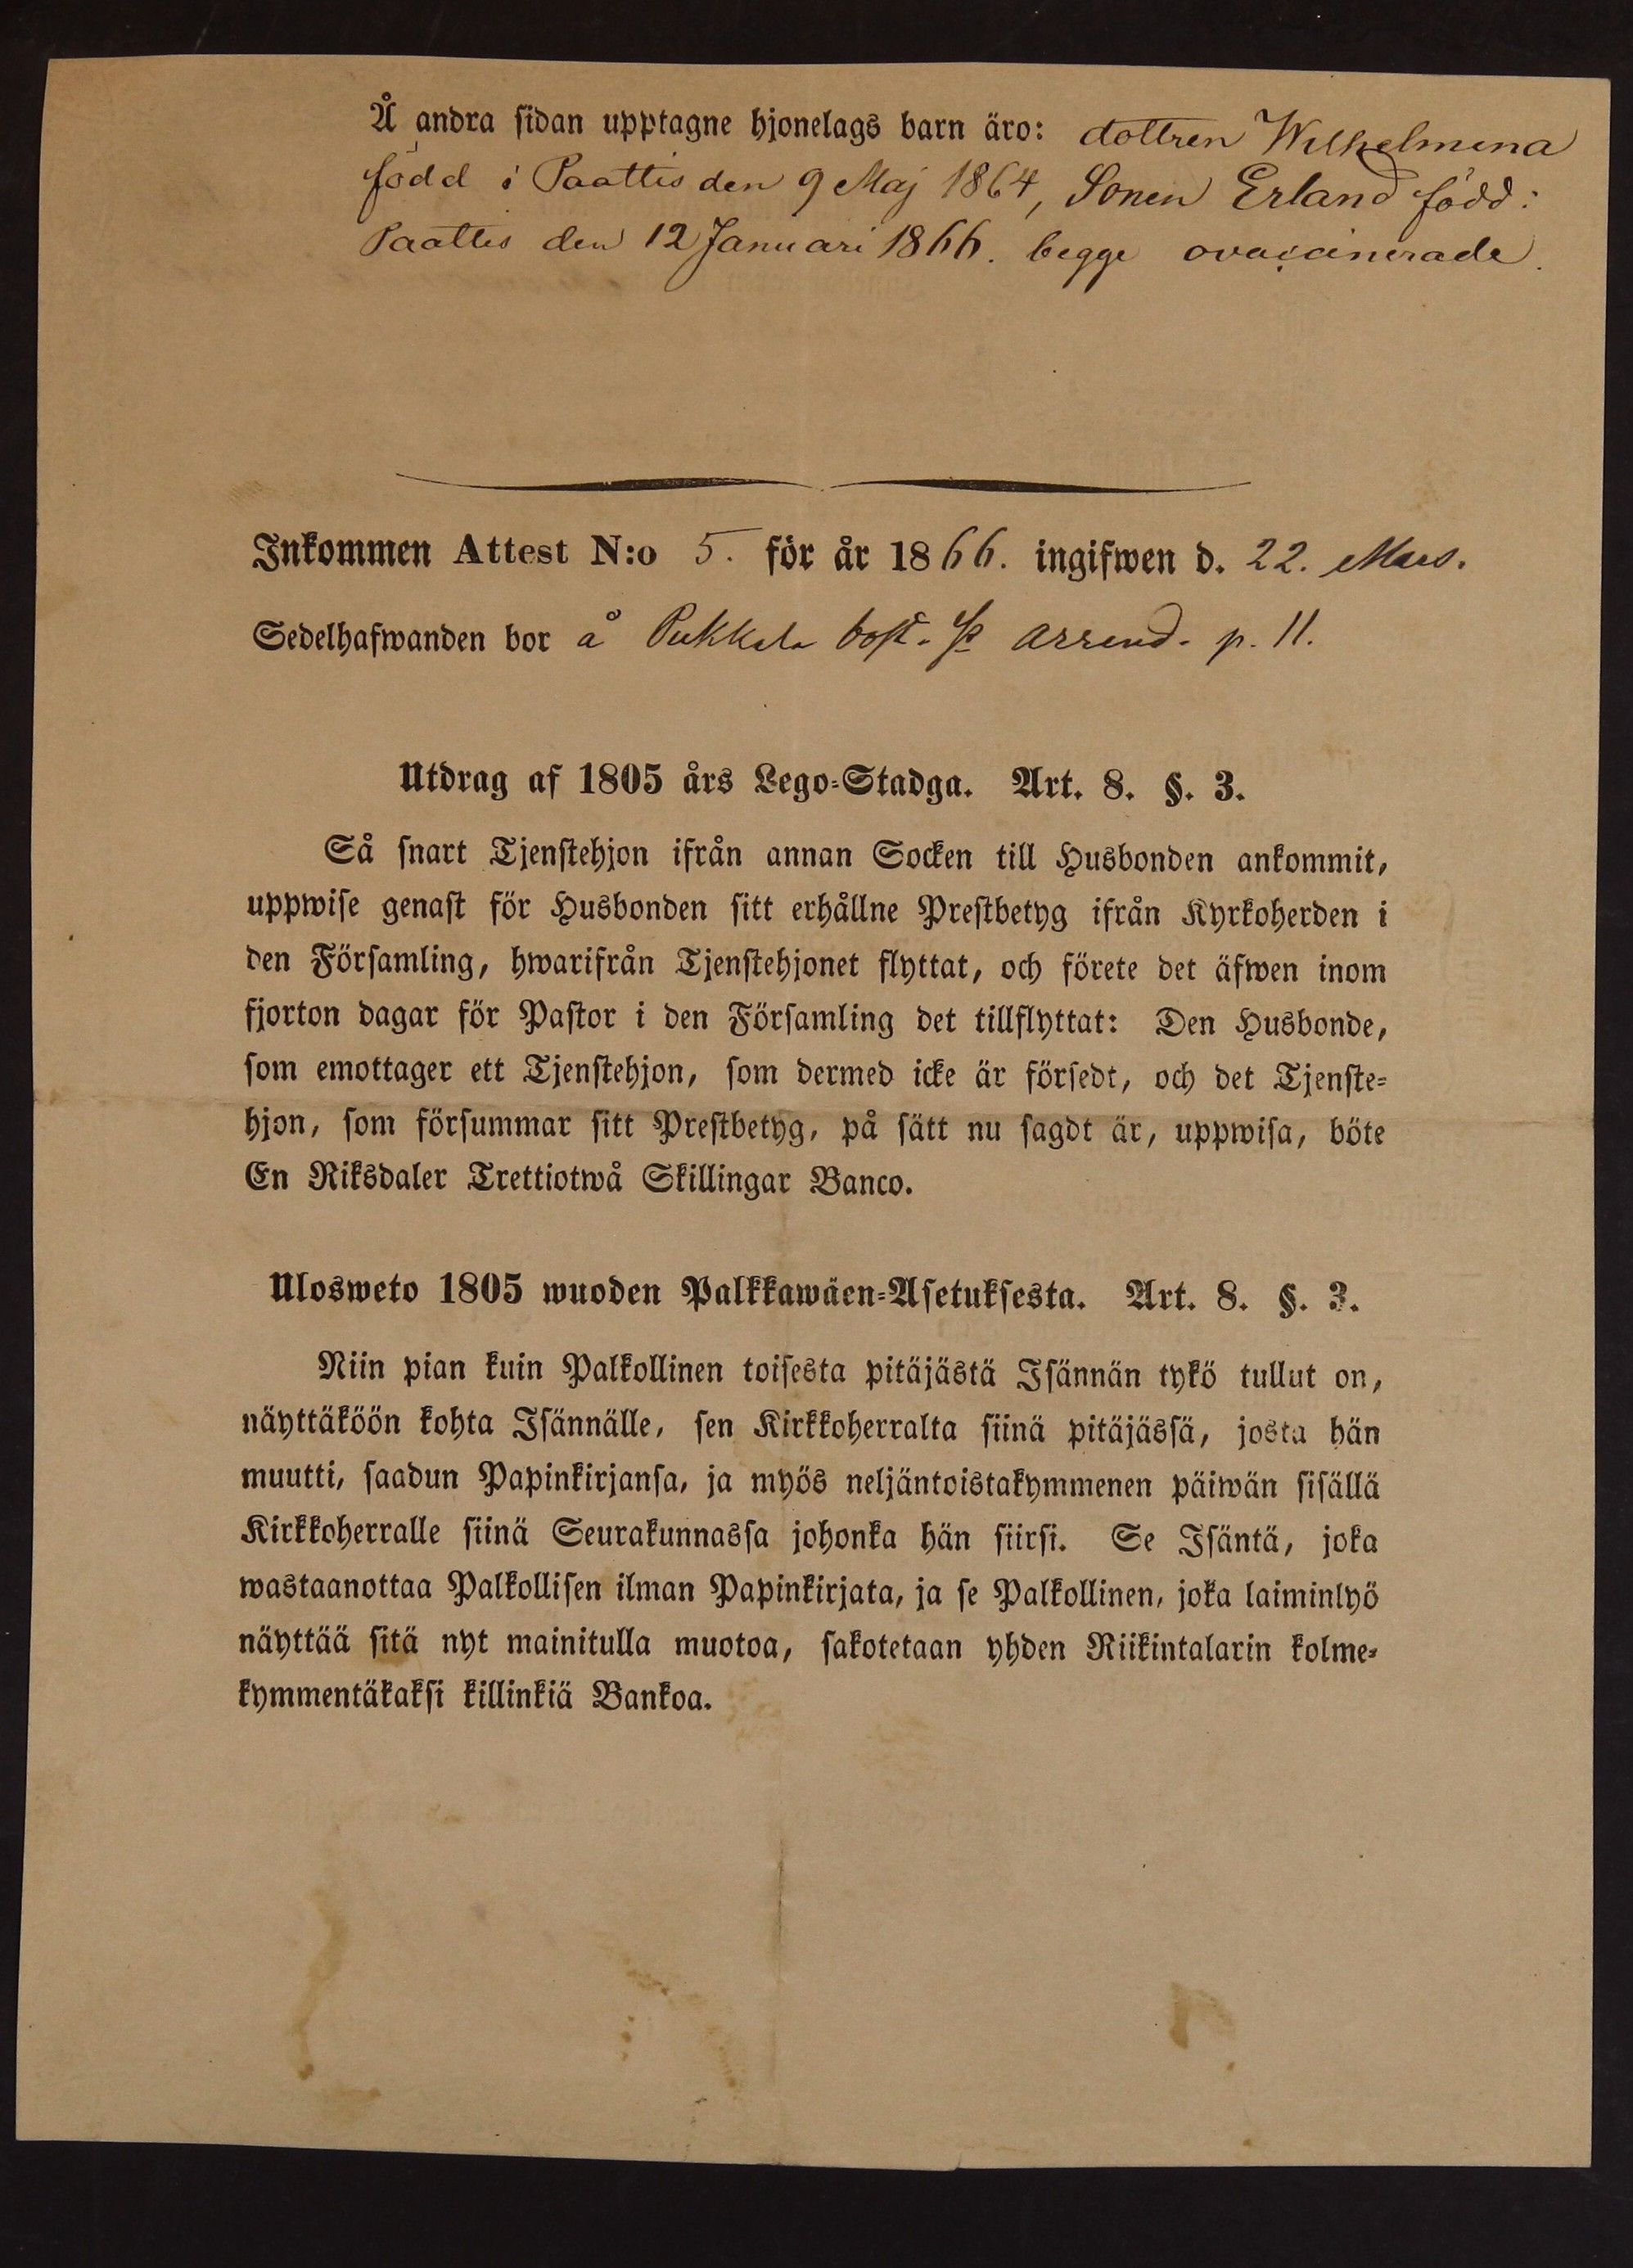 Å andra sidan upptagne hjonelags barn äro: dottren Wilhelmina
född i Paattis den 9 Maj 1864, Sonen Erland född i
Paattis den 12 Januari 1866. begge ovaccinerade.
Inkommen Attest N:o 5. för år 1866. ingifwen d. 22. Mars.
Sedelhafwanden bor å Pukkala bost. arrend. p. 11.
Utdrag af 1805 års Lego-Stadga. Art. 8. §. 3.
Så snart Tjenstehjon ifrån annan Socken till Husbonden ankommit,
uppwise genast för Husbonden sitt erhållne Prestbetyg ifrån Kyrkoherden i
den Församling, hwarifrån Tjenstehjonet flyttat, och förete det äfwen inom
fjorton dagar för Pastor i den Församling det tillflyttat: Den Husbonde,
som emottager ett Tjenstehjon, som dermed icke är försedt, och det Tjenste-
hjon, som försummar sitt Prestbetyg, på sätt nu sagdt är, uppwisa, böte
En Riksdaler Trettiotwå Skillingar Banco.
Ulosweto 1805 wuoden Palkkawäen-Asetuksesta. Art. 8. §. 3.
Niin pian kuin Palkollinen toisesta pitäjästä Isännän tykö tullut on,
näyttäköön kohta Isännälle, sen Kirkkoherralta siinä pitäjässä, josta hän
muutti, saadun Papinkirjansa, ja myös neljäntoistakymmenen päiwän sisällä
Kirkkoherralle siinä Seurakunnassa johonka hän siirsi. Se Isäntä, joka
wastaanottaa Palkollisen ilman Papinkirjata, ja se Palkollinen, joka laiminlyö
näyttää sitä nyt mainitulla muotoa, sakotetaan yhden Riikintalarin kolme-
kymmentäkaksi killinkiä Bankoa.